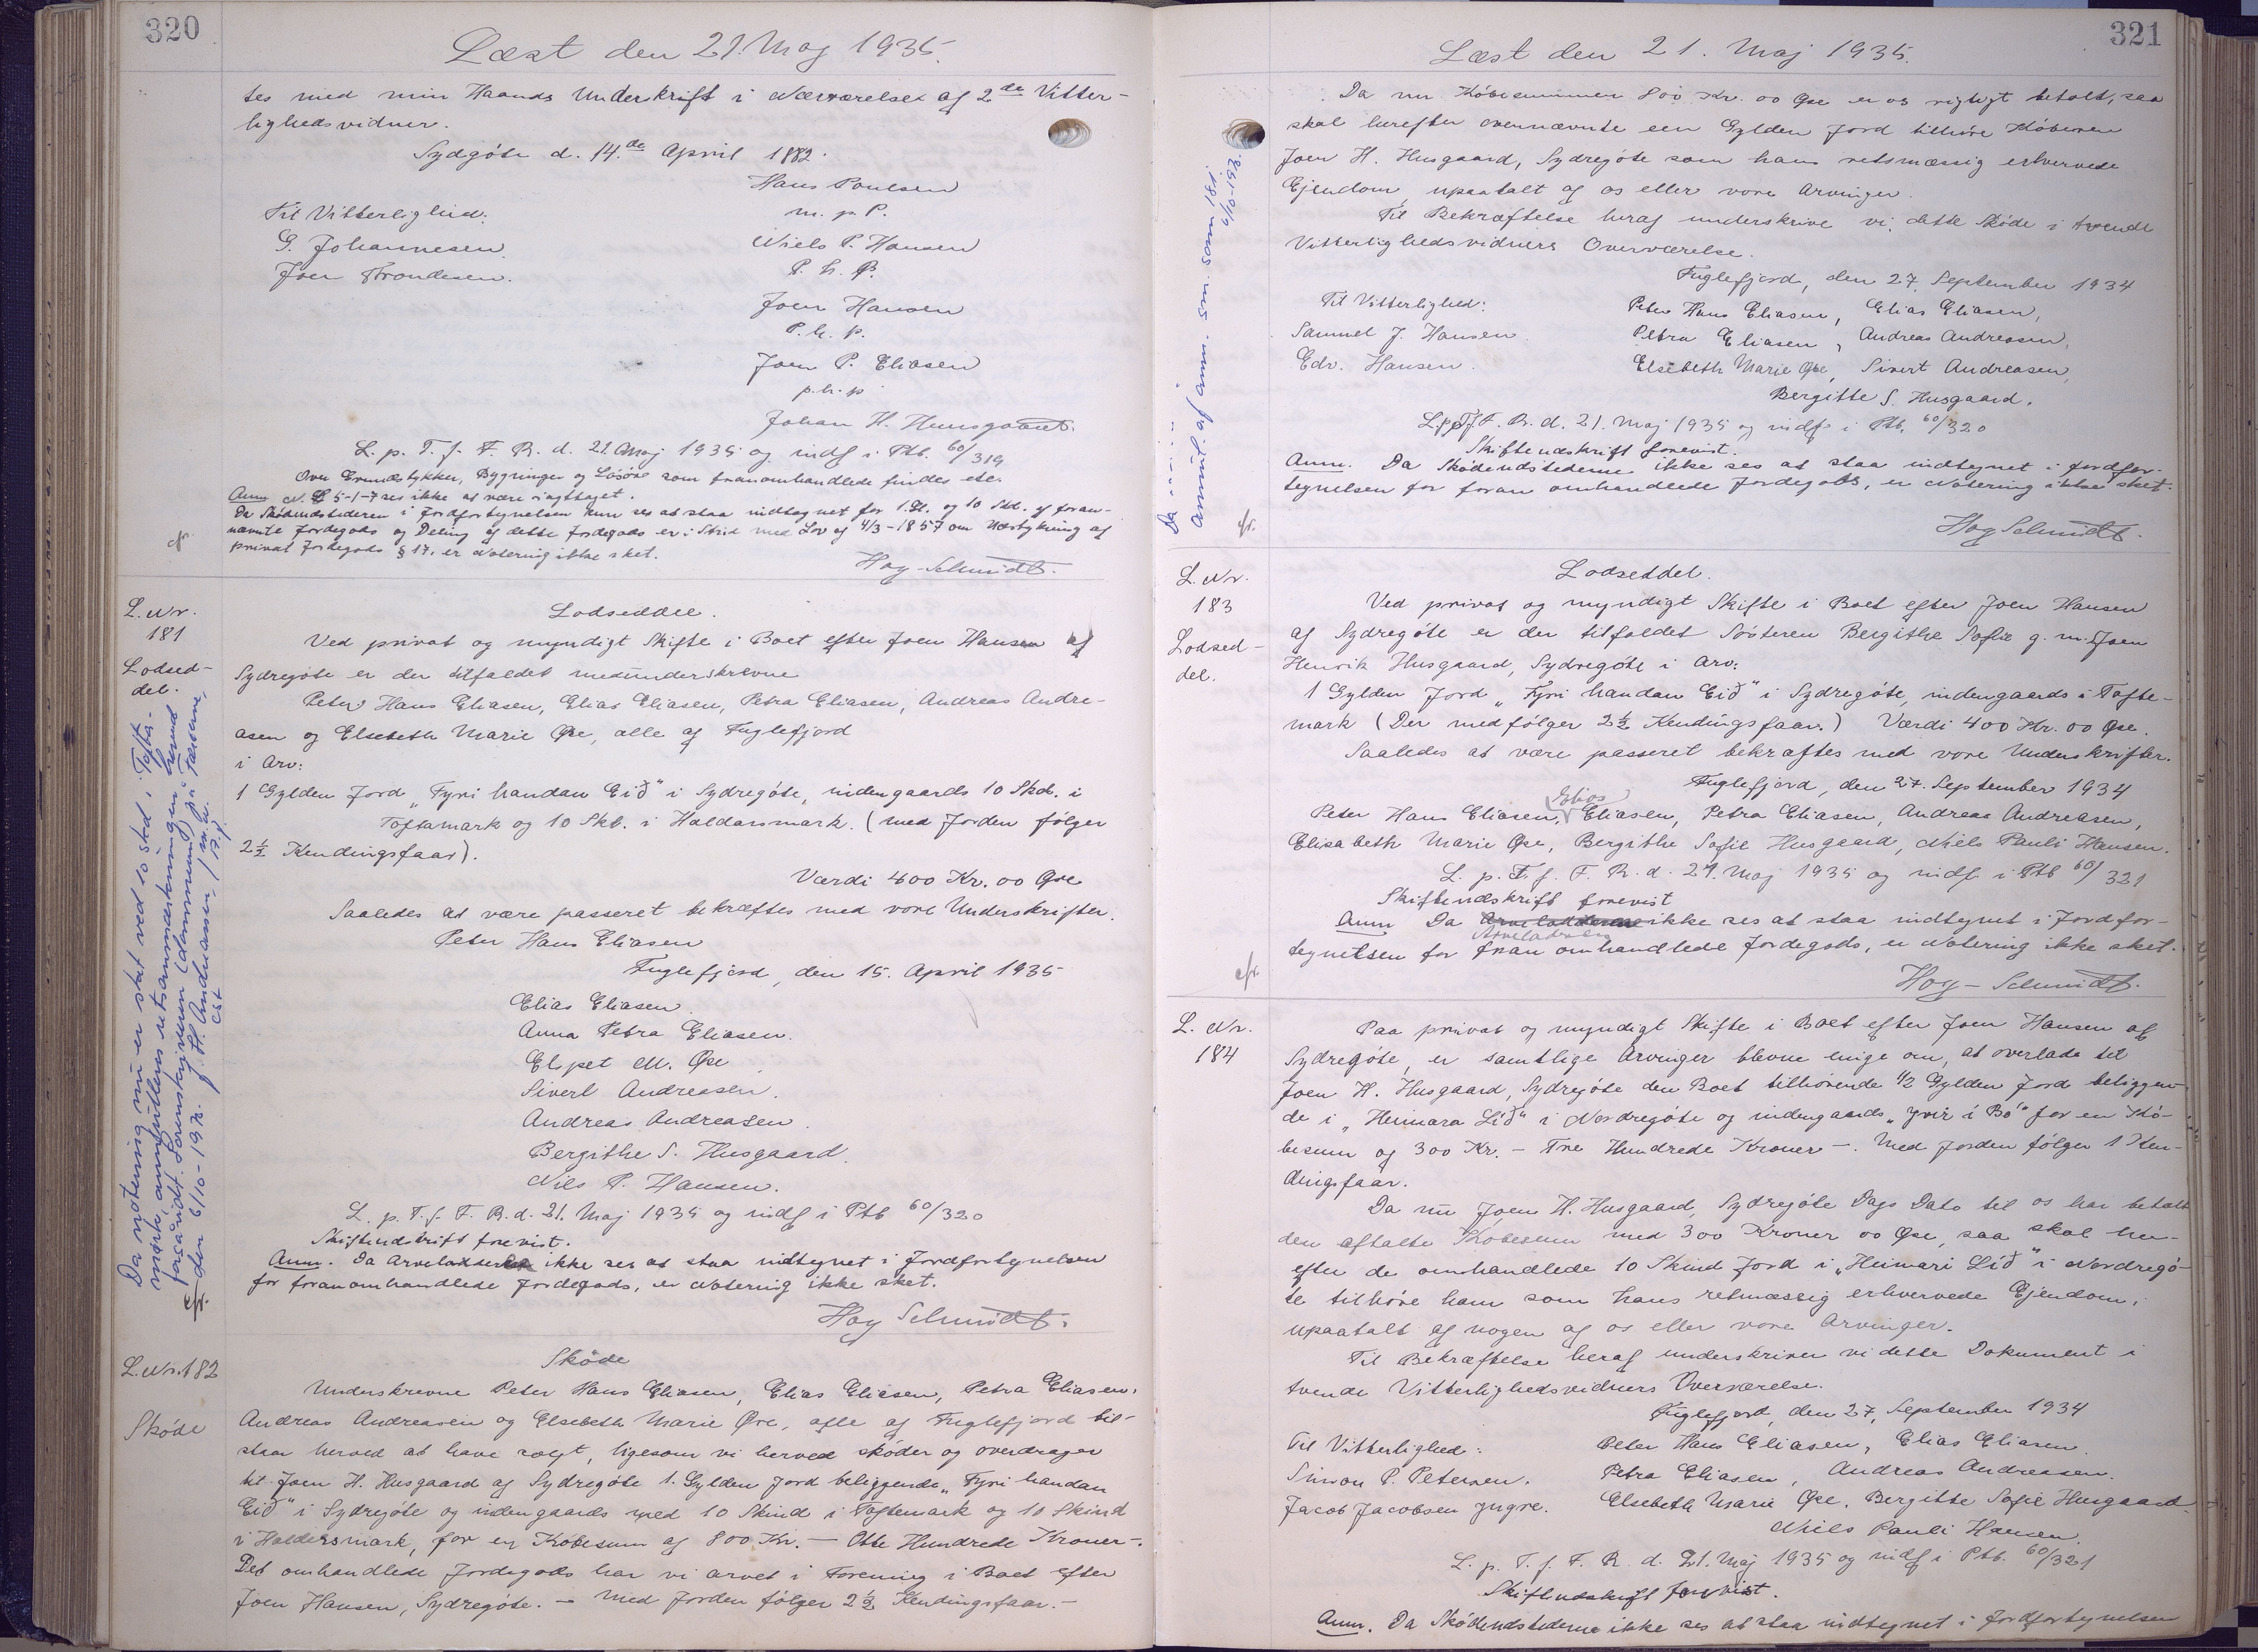 320
Læst den 21. Maj 1935.
tes med min Haands Underskrift i Nærværelse af 2de Vitter-
lighedsvidner.
Sydgöte d. 14.de April 1882.
Hans Poulsen
m. p. P.
Til Vitterlighed:
G. Johannesen.
Joen Trondesen.
Niels P. Hansen
P. h. P.
Joen Hansen
P. h. p.
Joen P. Eliasen
p. h. p
Johan H. Huusgaard.
L. p. T. f. F. R. d. 21. Maj 1935 og indf i Ptb. 60/319
Over Grundstykker, Bygninger og Lösöre som foranomhandlede findes etc.
Anm N. L 5-1-7 ses ikke at være iagttaget.
Da Sködeudstederen i Jordfortegnelsen kun ses at staa indtegnet for 1. Gl. og 10 Skd. af foran-
nævnte Jordegods og Deling af dette Jordegods er i Strid med Lov af 4/3-1857 om Udstykning af
privat Jordegods § 17, er Notering ikke sket.
Høy-Schmidt.
L. Nr.
181
Lodsed-
del.
Da notering nu er sket ved 10 skd i Tofte-
mark, annulleres retsanmærkningen herved
forsåvidt. Sorenskriveren (dommeren) på Færøerne,
den 6/10-1972. J. H. Andreassen / m.w. / E.f. cst
Lodseddel.
Ved privat og myndigt Skifte i Boet efter Joen Hansen af
Sydregöte er der tilfaldet medunderskrevne
Peter Hans Eliasen, Elias Eliasen, Petra Eliasen, Andreas Andre-
asen og Elsebeth Marie Øre, alle af Fuglefjord
i Arv:
1 Gylden Jord "Fyri handan Eið" i Sydregöte, indengaards 10 Skd. i
Toftamark og 10 Skd. i Haldarsmark. (med Jorden følger
2½ Kendingsfaar).
Værdi 400 Kr. 00 Øre
Saaledes at være passeret bekræftes med vore Underskrifter.
Peter Hans Eliasen
Fuglefjord, den 15. April 1935
Elias Eliasen
Anna Petra Eliasen.
Elspet M. Øre
Sivert Andreasen.
Andreas Andreasen
Bergithe S. Husgaard.
Nils P. Hansen.
L. p. T. f. F. R. d. 21. Maj 1935 og indf i Ptb 60/320
Skifteudskrift forevist.
Anm. Da Arveladeren ikke ses at staa indtegnet i Jordfortegnelsen
for foranomhandlede Jordegods, er Notering ikke sket.
Høy Schmidt.
L. Nr. 182
Sköde
Sköde
Underskrevne Peter Hans Eliasen, Elias Eliasen, Petra Eliasen,
Andreas Andreasen og Elsebeth Marie Øre, alle af Fuglefjord til-
staar herved at have solgt, ligesom vi herved sköder og overdrager
til Joen H. Husgaard af Sydregöte 1. Gylden Jord beliggende "Fyri handan
Eið" i Sydregöte og indengaards med 10 Skind i Toftemark og 10 Skind
i Haldersmark, for en Köbesum af 800 Kr. - Otte Hundrede Kroner -.
Det omhandlede Jordegods har vi arvet i Forening i Boet efter
Joen Hansen, Sydregöte. - Med Jorden følger 2½ Kendingsfaar. -
321
Læst den 21. Maj 1935.
Da nu Købesummen 800 Kr. 00 Øre er os rigtigt betalt, saa
skal herefter ovennævnte een Gylden Jord tilhöre Köberen
Joen H. Husgaard, Sydregöte som hans retsmæssig erhvervede
Ejendom, upaatalt af os eller vore Arvinger.
Til Bekræftelse heraf underskrive vi dette Sköde i tvende
Vitterlighedsvidners Overværelse.
Fuglefjord, den 27. September 1934
Til Vitterlighed:
Samuel J. Hansen
Edv. Hansen.
Peter Hans Eliasen, Elias Eliasen,
Petra Eliasen, Andreas Andreasen,
Elsebeth Marie Øre, Sivert Andreasen,
Bergitte S. Husgaard.
L. p. T. f. F. R. d. 21. Maj 1935 og indf i Ptb. 60/320
Skifteudskrift forevist.
Anm. Da Sködeudstederne ikke ses at staa indtegnet i Jordfor-
tegnelsen for foran omhandlede Jordegods, er Notering ikke sket.
Høy Schmidt.
annul. af anm. sm. som 181.
6/10-1972.
L. Nr.
183
Lodsed-
del.
Lodseddel.
Ved privat og myndigt Skifte i Boet efter Joen Hansen
af Sydregöte er der tilfaldet Søsteren Bergithe Sofie g. m. Joen
Henrik Husgaard, Sydregöte i Arv:
1 Gylden Jord "Fyri handan Eið" i Sydregöte, indengaards i Tofte-
mark (Der medfølger 2½ Kendingsfaar.) Værdi 400 Kr. 00 Øre.
Saaledes at være passeret bekræftes med vore Underskrifter.
Fuglefjord, den 27. September 1934
Peter Hans Eliasen, Elias Eliasen, Petra Eliasen, Andreas Andreasen,
Elisabeth Marie Øre, Bergithe Sofie Husgaard, Niels Pauli Hansen.
L. p. T. f. F. R. d. 21. Maj 1935 og indf i Ptb 60/321
Skifteudskrift forevist
Anm Da Arveladeren ikke ses at staa indtegnet i Jordfor-
tegnelsen for foran omhandlede Jordegods, er Notering ikke sket.
Høy-Schmidt.
L. Nr.
184
Paa privat og myndigt Skifte i Boet efter Joen Hansen af
Sydregöte, er samtlige Arvinger blevne enige om, at overlade til
Joen H. Husgaard, Sydregöte den Boet tilhörende 1/2 Gylden Jord beliggen-
de i "Heimara Lið" i Nordregöte og indengaards "Yvir i Bö" for en Kö-
besum og 300 Kr. - Tre Hundrede Kroner -. Med Jorden følger 1 Ken-
dingsfaar.
Da nu Joen H. Husgaard, Sydregöte Dags Dato til os har betalt
den aftalte Købesum med 300 Kroner 00 Øre, saa skal her-
efter de omhandlede 10 Skind Jord i "Heimari Lið" i Nordregö-
te tilhöre ham som hans retmæssig erhvervede Ejendom,
upaatalt af nogen af os eller vore Arvinger.
Til Bekræftelse heraf underskriver vi dette Dokument i
tvende Vitterlighedsvidners Overværelse.
Fuglefjord, den 27. September 1934
Til Vitterlighed:
Simon P. Petersen.
Jacob Jacobsen yngre.
Peter Hans Eliasen, Elias Eliasen.
Petra Eliasen, Andreas Andreasen.
Elsebeth Marie Øre, Bergitte Sofie Husgaard
Niels Pauli Hansen.
L. p. T. f. F. R. d. 21. Maj 1935 og indf i Ptb. 60/321
Skifteudskrift forevist.
Anm. Da Sködeudstederne ikke ses at staa indtegnet i Jordfortegnelsen